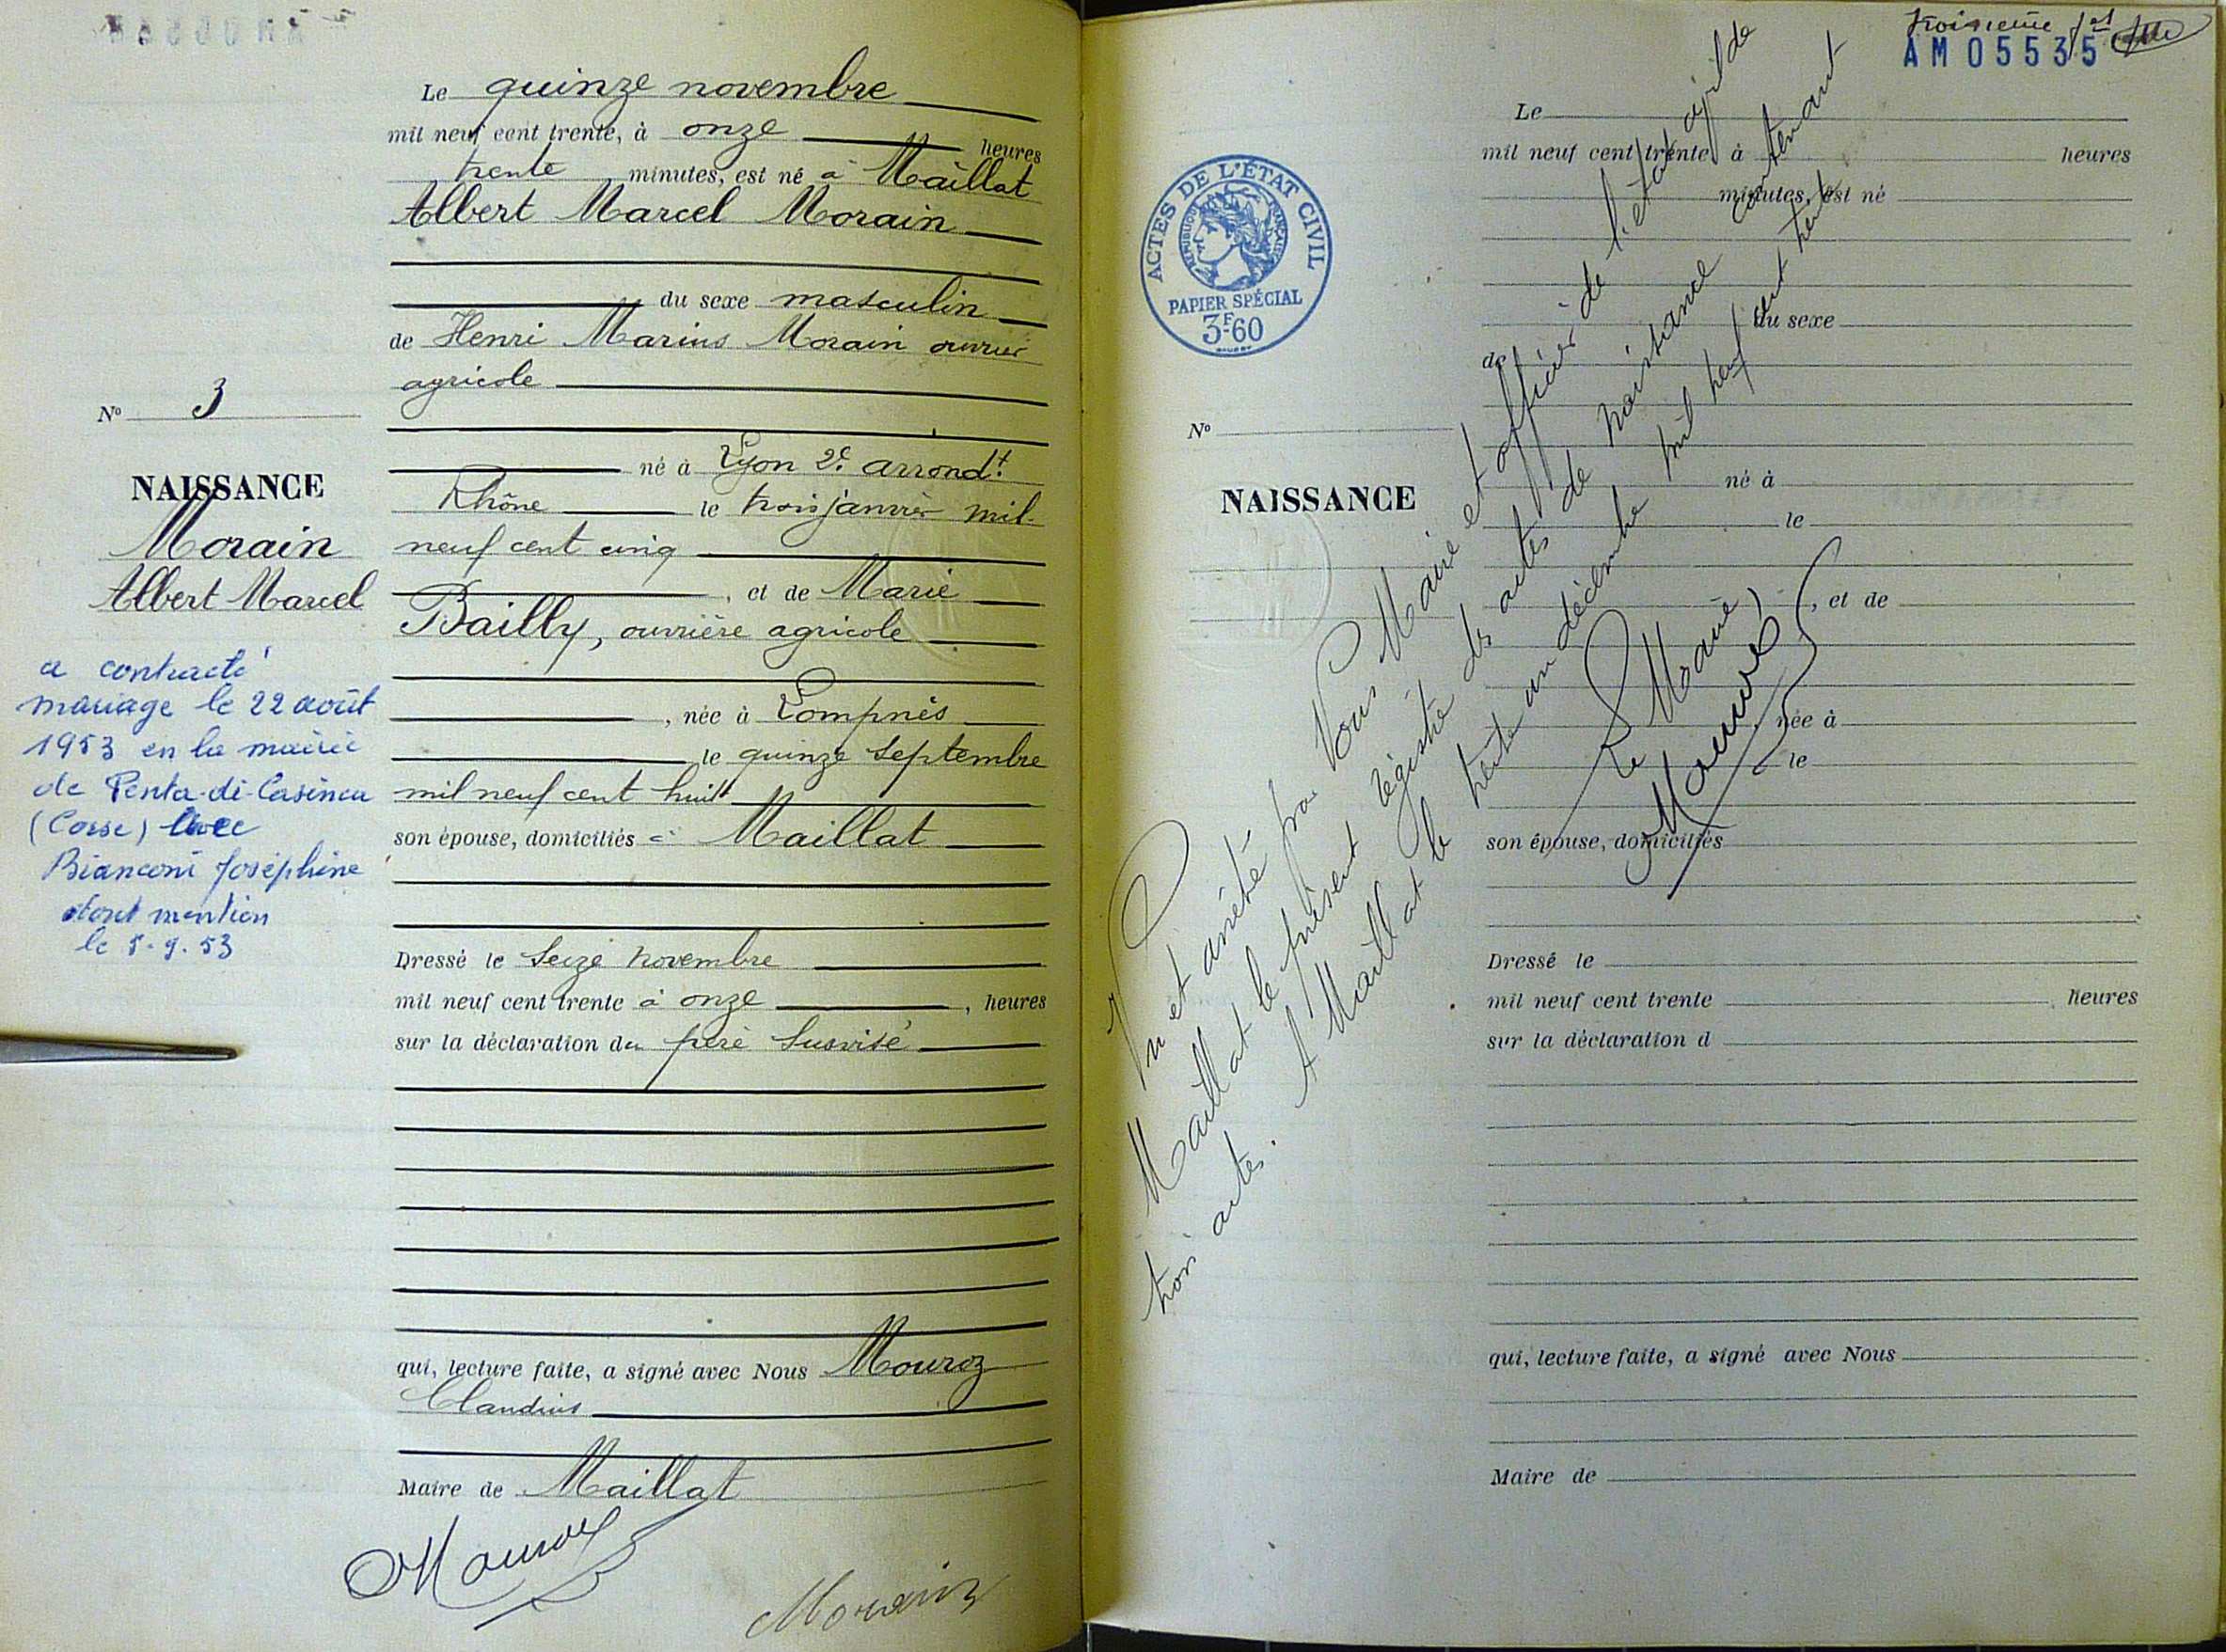 Le quinze novembre
mil neuf cent trente, à onze heures
trente minutes, est né à Maillat
Albert Marcel Morain
du sexe masculin
de Henri Marius Morain ouvrier
agricole
né à Lyon 2e arrondt
Rhône le trois janvier mil
neuf cent cinq
, et de Marie
Bailly, ouvrière agricole
, née à Lompnès
le quinze septembre
mil neuf cent huit
son épouse, domiciliés à Maillat
Dressé le seize novembre
mil neuf cent trente à onze, heures
sur la déclaration du père susvisé
qui, lecture faite, a signé avec Nous Mouroz
Claudius
Maire de Maillat
Mouroz
Morain
No 3
NAISSANCE
Morain
Albert Marcel
a contracté
mariage le 22 août
1953 en la mairie
de Penta-di-Casinca
(Corse) avec
Bianconi Joséphine
dont mention
le 5-9-53
troisième
AM 05535
ACTES DE L'ÉTAT CIVIL
RÉPUBLIQUE FRANÇAISE
PAPIER SPÉCIAL
3F60
No
NAISSANCE
Le
mil neuf cent trente à heures
minutes, est né
du sexe
de
né à
le
, et de
née à
le
son épouse, domiciliés
Dressé le
mil neuf cent trente heures
sur la déclaration d
qui, lecture faite, a signé avec Nous
Maire de
Vu et arrêté par Nous Maire et officier de l'état civil de
Maillat le présent registre des actes de naissance contenant
trois actes. A Maillat le trente un décembre mil neuf cent trente
Le Maire,
Mouroz